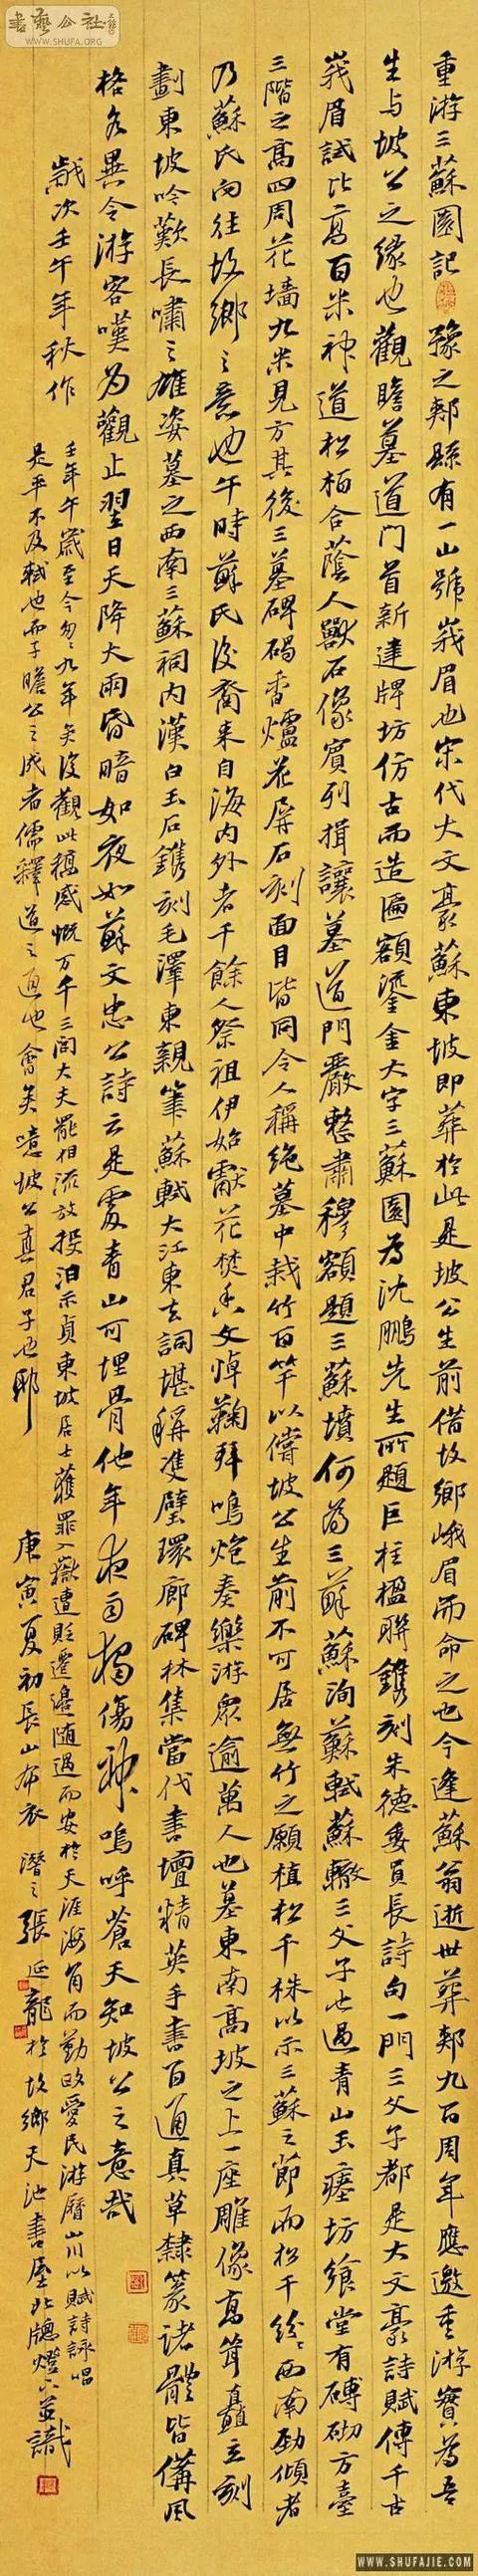 書藝公社
WWW.SHUFA.ORG
重游三蘇園記 豫之郟縣有一山號峩眉也宋代大文豪蘇東坡即葬於此是坡公生前借故鄉峨眉而命之也今逢蘇翁逝世葬郟九百周年應邀重游實為吾
生与坡公之緣也觀瞻墓道門首新建牌坊仿古而造匾額鎏金大字三蘇園為沈鵬先生所題巨柱楹聯鐫刻朱德委員長詩句一門三父子都是大文豪詩賦傳千古
峩眉試比高百米神道松栢合蔭人獸石像賓列揖讓墓道門嚴整肅穆額題三蘇墳何為三蘇蘇洵蘇軾蘇轍三父子也過青山玉瘞坊饗堂有磚砌方臺
三階之高四周花墻九米見方其後三墓碑碣香爐花屏石刻面目皆同令人稱绝墓中栽竹百竿以償坡公生前不可居無竹之願植松千株以示三蘇之節而松千紛紛西南勁傾者
乃蘇氏向往故鄉之意也午時蘇氏後裔来自海内外者千餘人祭祖伊始獻花焚香文悼鞠拜鳴炮奏樂游眾逾萬人也墓東南高坡之上一座雕像高聳矗立刻
劃東坡吟歎長嘯之雄姿墓之西南三蘇祠内漢白玉石鐫刻毛澤東親筆蘇軾大江東去詞堪稱雙璧環廊碑林集當代書壇精英手書百通真草隸篆諸體皆備風
格各異令游客嘆为觀止翌日天降大雨昏暗如夜如蘇文忠公詩云是處青山可埋骨他年夜雨獨傷神嗚呼蒼天知坡公之意哉
歲次壬午年秋作
壬年午歲至今匆匆九年矣後觀此稿感慨万千三閭大夫罷相流放投汨示貞東坡居士獲罪入獄遭貶遷邊随遇而安於天涯海角而勤政愛民游歷山川以賦詩詠唱
是平不及軾也而子瞻公之成者儒釋道之通也會矣噫坡公真君子也耶
庚寅夏初長山布衣潛之張延龍於故鄉天池書屋北牕燈下並識
WWW.SHUFAJIE.COM